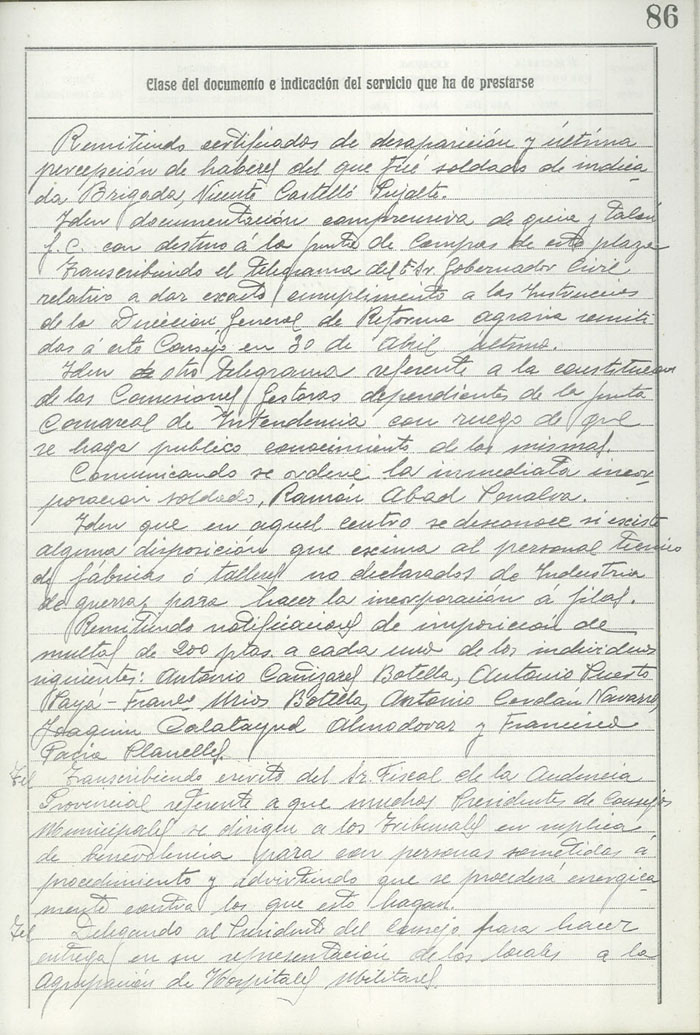 86
Clase del documento e indicación del servicio que ha de prestarse
Remitiendo certificados de desaparición y última
percepción de haberes del que fué soldado de indica
da Brigada, Vicente Castelló Pujalte.
Iden documentación comprensiva de guia y talón
f.c. con destino á la junta de Compras de esta plaza
Transcribiendo el telegrama del Sr. Gobernador Civil
relativo a dar exacto cumplimiento a las Instrucciones
de la Dirección General de Reforma agraria remiti
das á este Consejo en 30 de Abril último.
Iden de otro telegrama referente a la constitución
de las Comisiones Gestoras dependientes de la junta
Comarcal de Intendencia con ruego de que
se haga publico conocimiento de las mismas.
Comunicando se ordene la inmediata incor-
poración soldado, Ramón Abad Penalva.
Iden que en aquel centro se desconoce si existe
alguna disposición que exima al personal técnico
de fábricas ó talleres no declarados de Industria
de guerra, para hacer la incorporación á filas.
Remitiendo notificaciones de imposición de
multas de 200 ptas. a cada uno de los individuos
siguientes: Antonio Cañizares Botella, Antonio Puerto
Payá - Franco Mrios Botella, Antonio Cerdán Navarro,
Joaquin Calatayud Almodovar y Francisco
Planelles.
Transcribiendo escrito del Sr. Fiscal de la Audencia
Provincial referente a que muchos Presidentes de Consejos
Municipales se dirigen a los Tribunales en suplica
de benevolencia para con personas sometidas á
procedimiento y advirtiendo que se procederá energica-
mente contra los que esto hagan.
Delegando al Presidente del Consejo para hacer
entrega en su representación de los locales a la
Agrupación de Hospitales Militares.